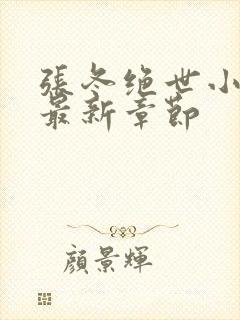 張冬绝世小
最新章節
顏景輝